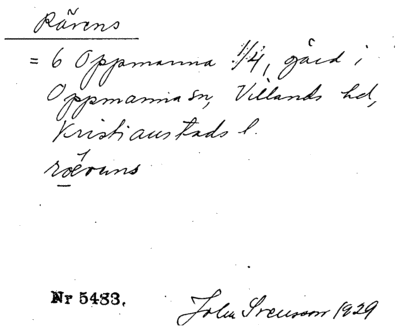 Rörens
= 6 Oppmanna 1/4, gård i
Oppmanna sn, Villands hd,
Kristianstads l.
Nr 5483.
John Svensson 1929